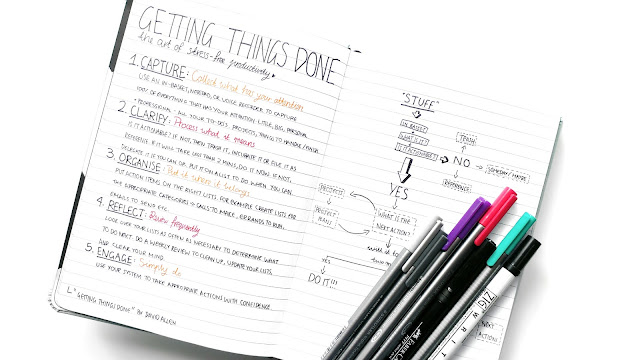 GETTING THINGS DONE
the art of stress-free productivity
1. CAPTURE: Collect what has your attention
USE AN IN-BASKET, NOTEPAD, OR VOICE RECORDER TO CAPTURE
100% OF EVERYTHING THAT HAS YOUR ATTENTION LITTLE, BIG, PERSONAL
+ PROFESSIONAL - ALL YOUR TO-DO'S, PROJECTS, THINGS TO HANDLE/FINISH
2. CLARIFY: Process what it means
IS IT ACTIONABLE? IF NOT, THEN TRASH IT, INCUBATE IT OR FILE IT AS
REFERENCE. IF IT WILL TAKE LESS THAN 2 MINS, DO IT NOW. IF NOT,
DELEGATE IT IF YOU CAN OR PUT IT ON A LIST TO DO WHEN YOU CAN.
3. ORGANISE: Put it where it belongs
PUT ACTION ITEMS ON THE RIGHT LISTS. FOR EXAMPLE CREATE LISTS FOR
THE APPROPRIATE CATEGORIES - CALLS TO MAKE, ERRANDS TO RUN,
EMAILS TO SEND ETC.
4. REFLECT: Review frequently
LOOK OVER YOUR LISTS AS OFTEN AS NECESSARY TO DETERMINE WHAT
TO DO NEXT. DO A WEEKLY REVIEW TO CLEAN UP, UPDATE YOUR LISTS,
AND CLEAR YOUR MIND.
5. ENGAGE: Simply do
USE YOUR SYSTEM TO TAKE APPROPRIATE ACTION WITH CONFIDENCE
"GETTING THINGS DONE" BY DAVID ALLEN
"STUFF"
IN BASKET
WHAT IS IT?
IS IT ACTIONABLE?
TRASH
NO
SOMEDAY / MAYBE
REFERENCE
YES
PROJECTS
PROJECT PLANS
WHAT IS THE NEXT ACTION?
YES
DO IT!!!
ZIG
WRIT
NEXT
ACTION